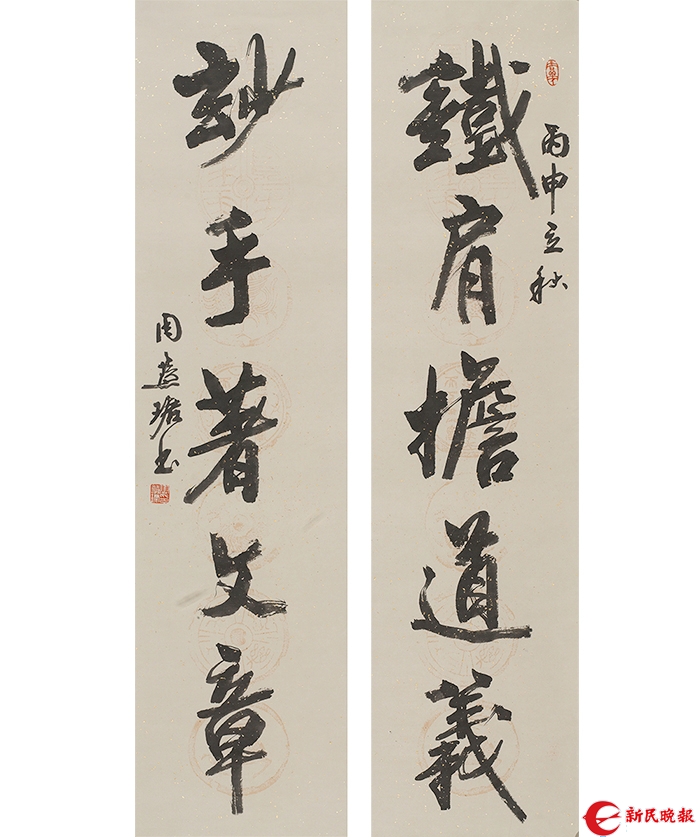 丙申立秋
鐵肩擔道義
玅手著文章
周慧珺书
新民晚報